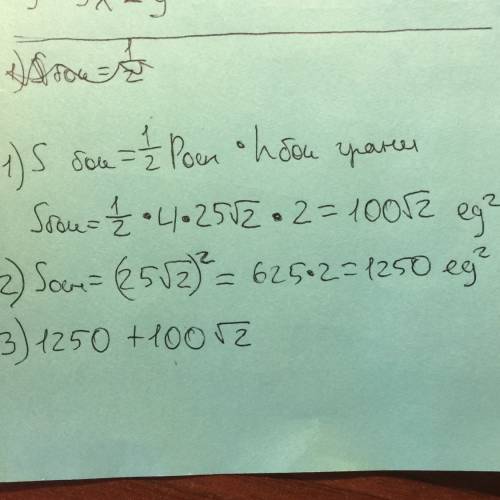 Sбок=1/2
1) S бок=1/2 Pосн • h бок грани
Sбок=1/2•4•25√2•2=100√2 ед²
2) Sосн=(25√2)²=625•2=1250 ед²
3) 1250+100√2